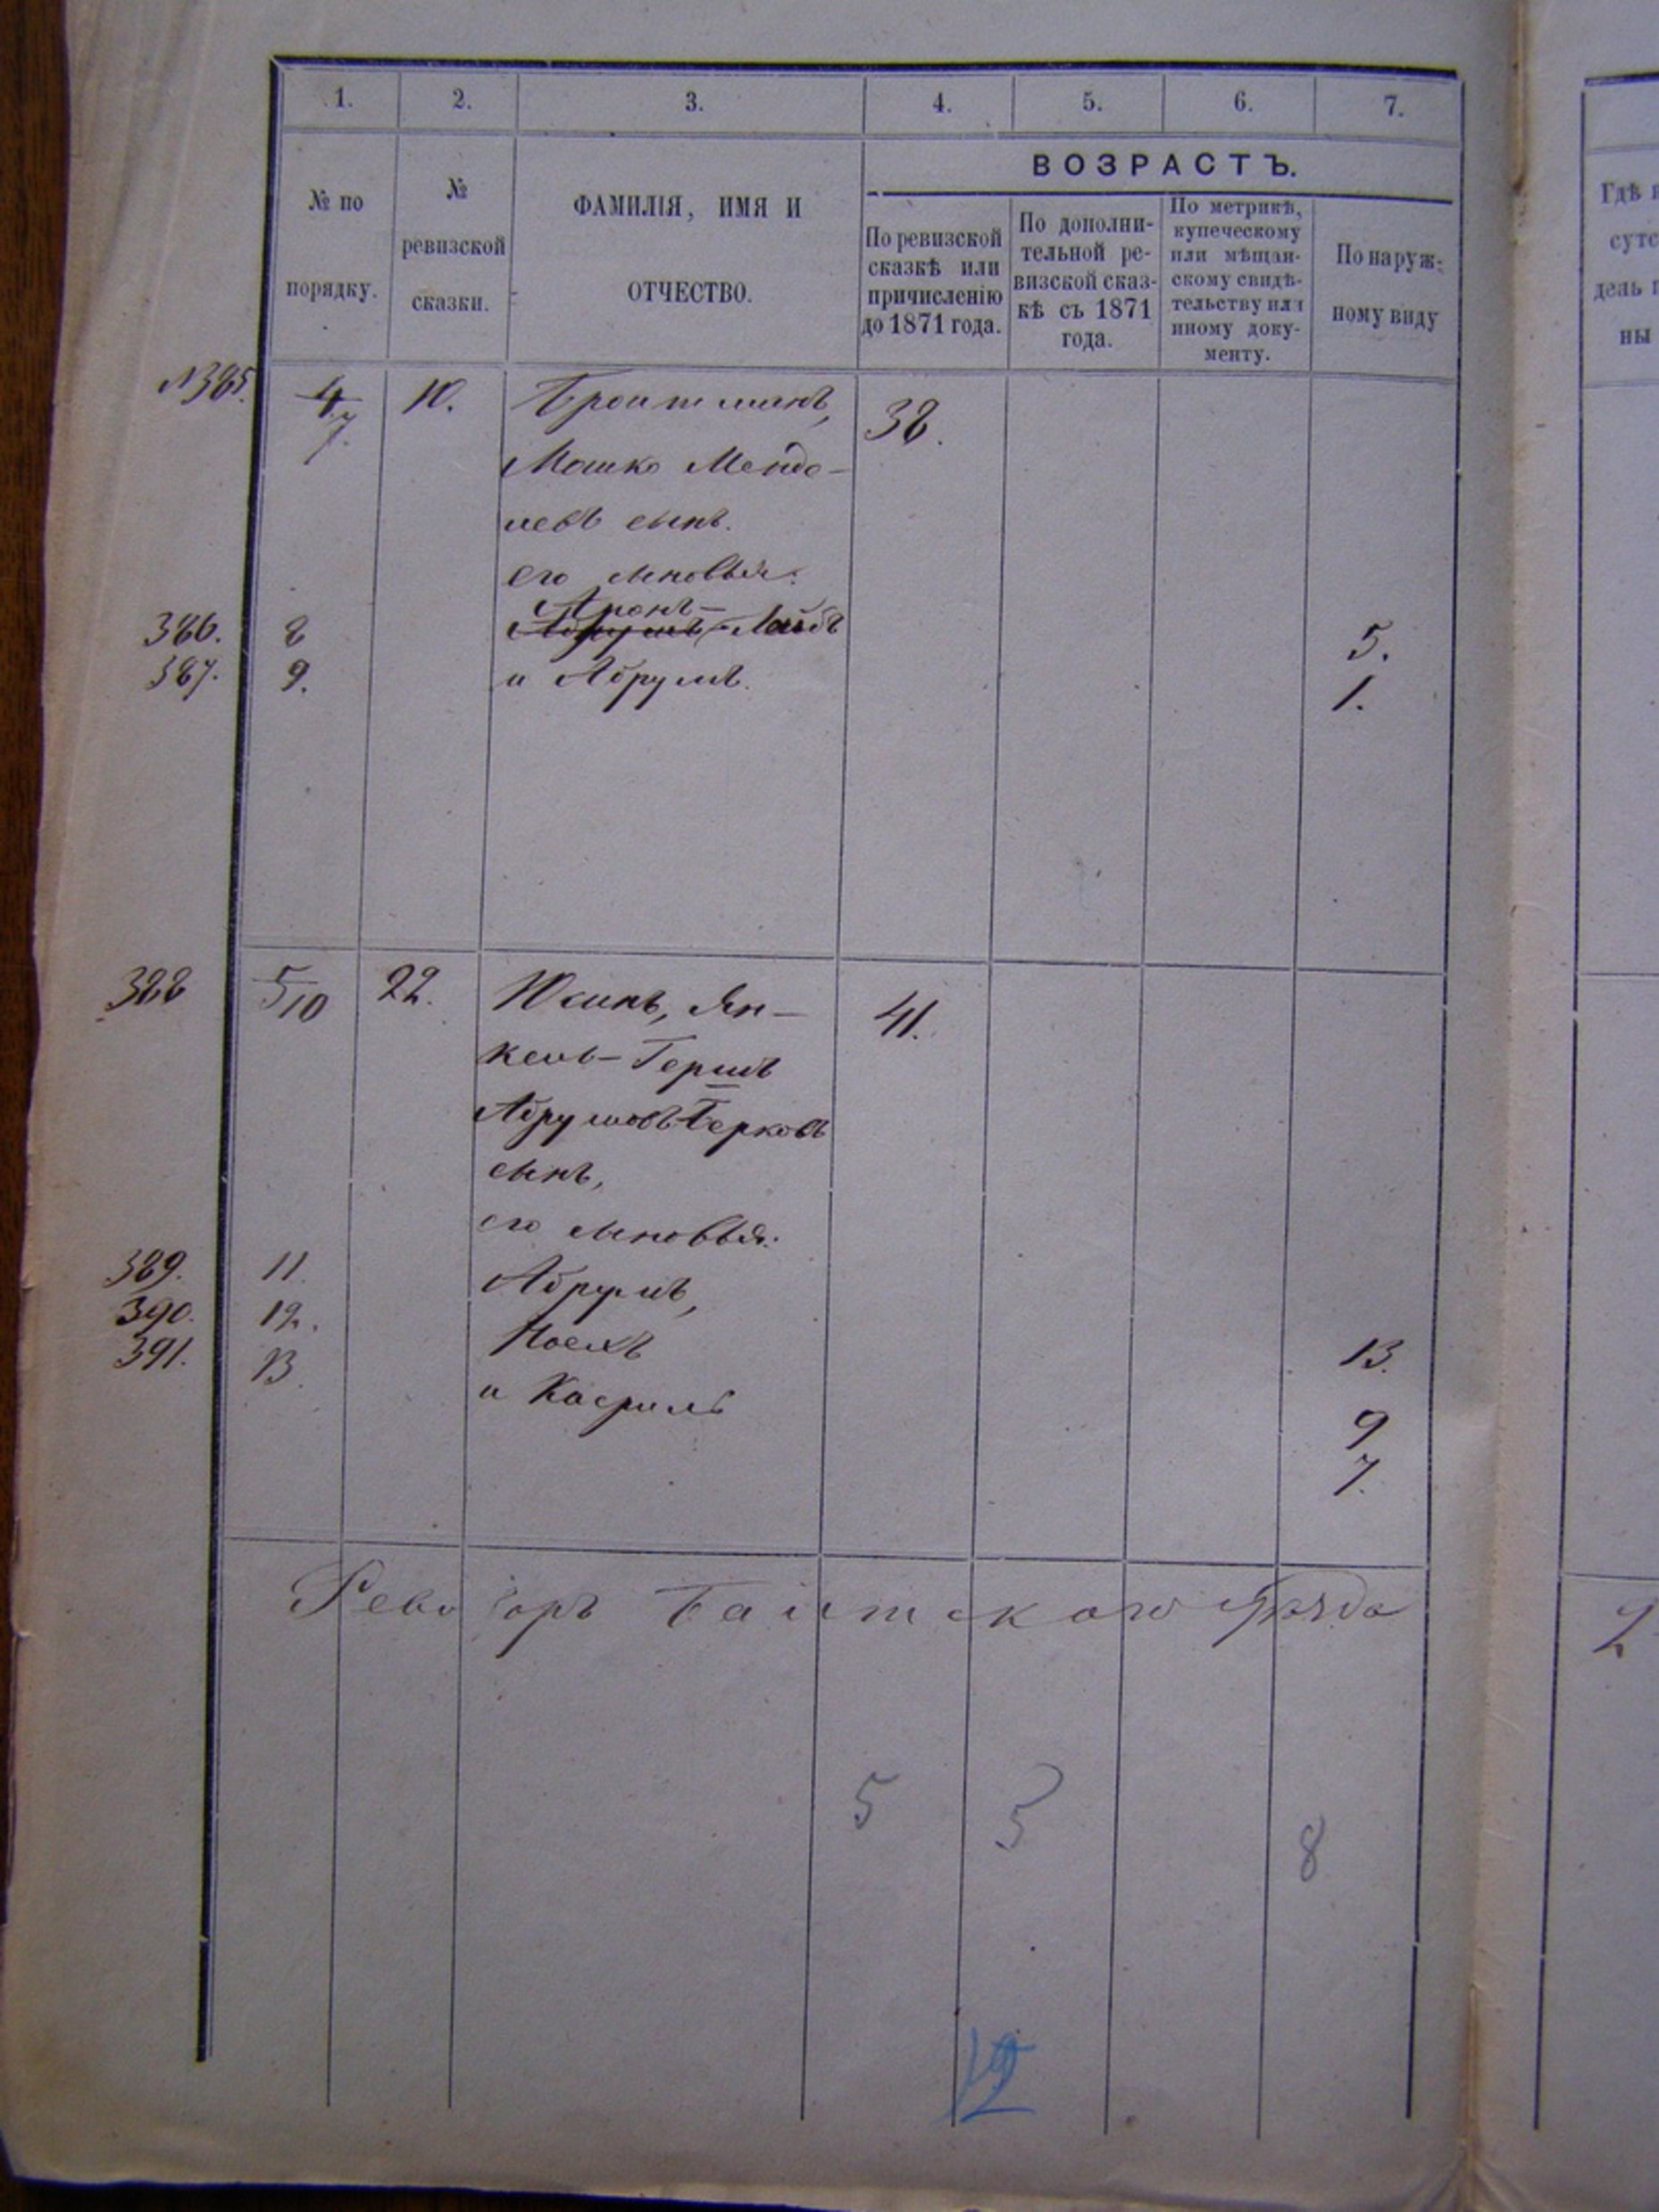 1. 2. 3. 4. 5. 6. 7.
№ по порядку.
№ ревизской сказки.
ФАМИЛІЯ, ИМЯ И
ОТЧЕСТВО.
ВОЗРАСТЪ.
По ревизской
сказкѣ или
причисленію
до 1871 года.
По дополни-
тельной ре-
визской сказ-
кѣ съ 1871
года.
По метрикѣ,
купеческому
или мѣщан-
скому свидѣ-
тельству или
иному доку-
менту.
По наруж-
ному виду
Гдѣ
сутс
ны
№385. 4/7. 10. Бройтманъ, 38.
Мошко Мендe-
левъ сынъ.
его сыновья:
Аронъ-
386. 8 Абрумъ Лейбъ 5.
387. 9. и Абрумъ. 1.
388 5/10 22. Юсимъ, Ян- 41.
кель-Гершъ
Абрумовъ-Берковъ
сынъ,
его сыновья:
389. 11. Абрумъ,
390. 12. Ноехъ 13.
391. 13. и Касриль 9
7.
Ревизоръ Балтскаго уѣзда
5 5 8
12